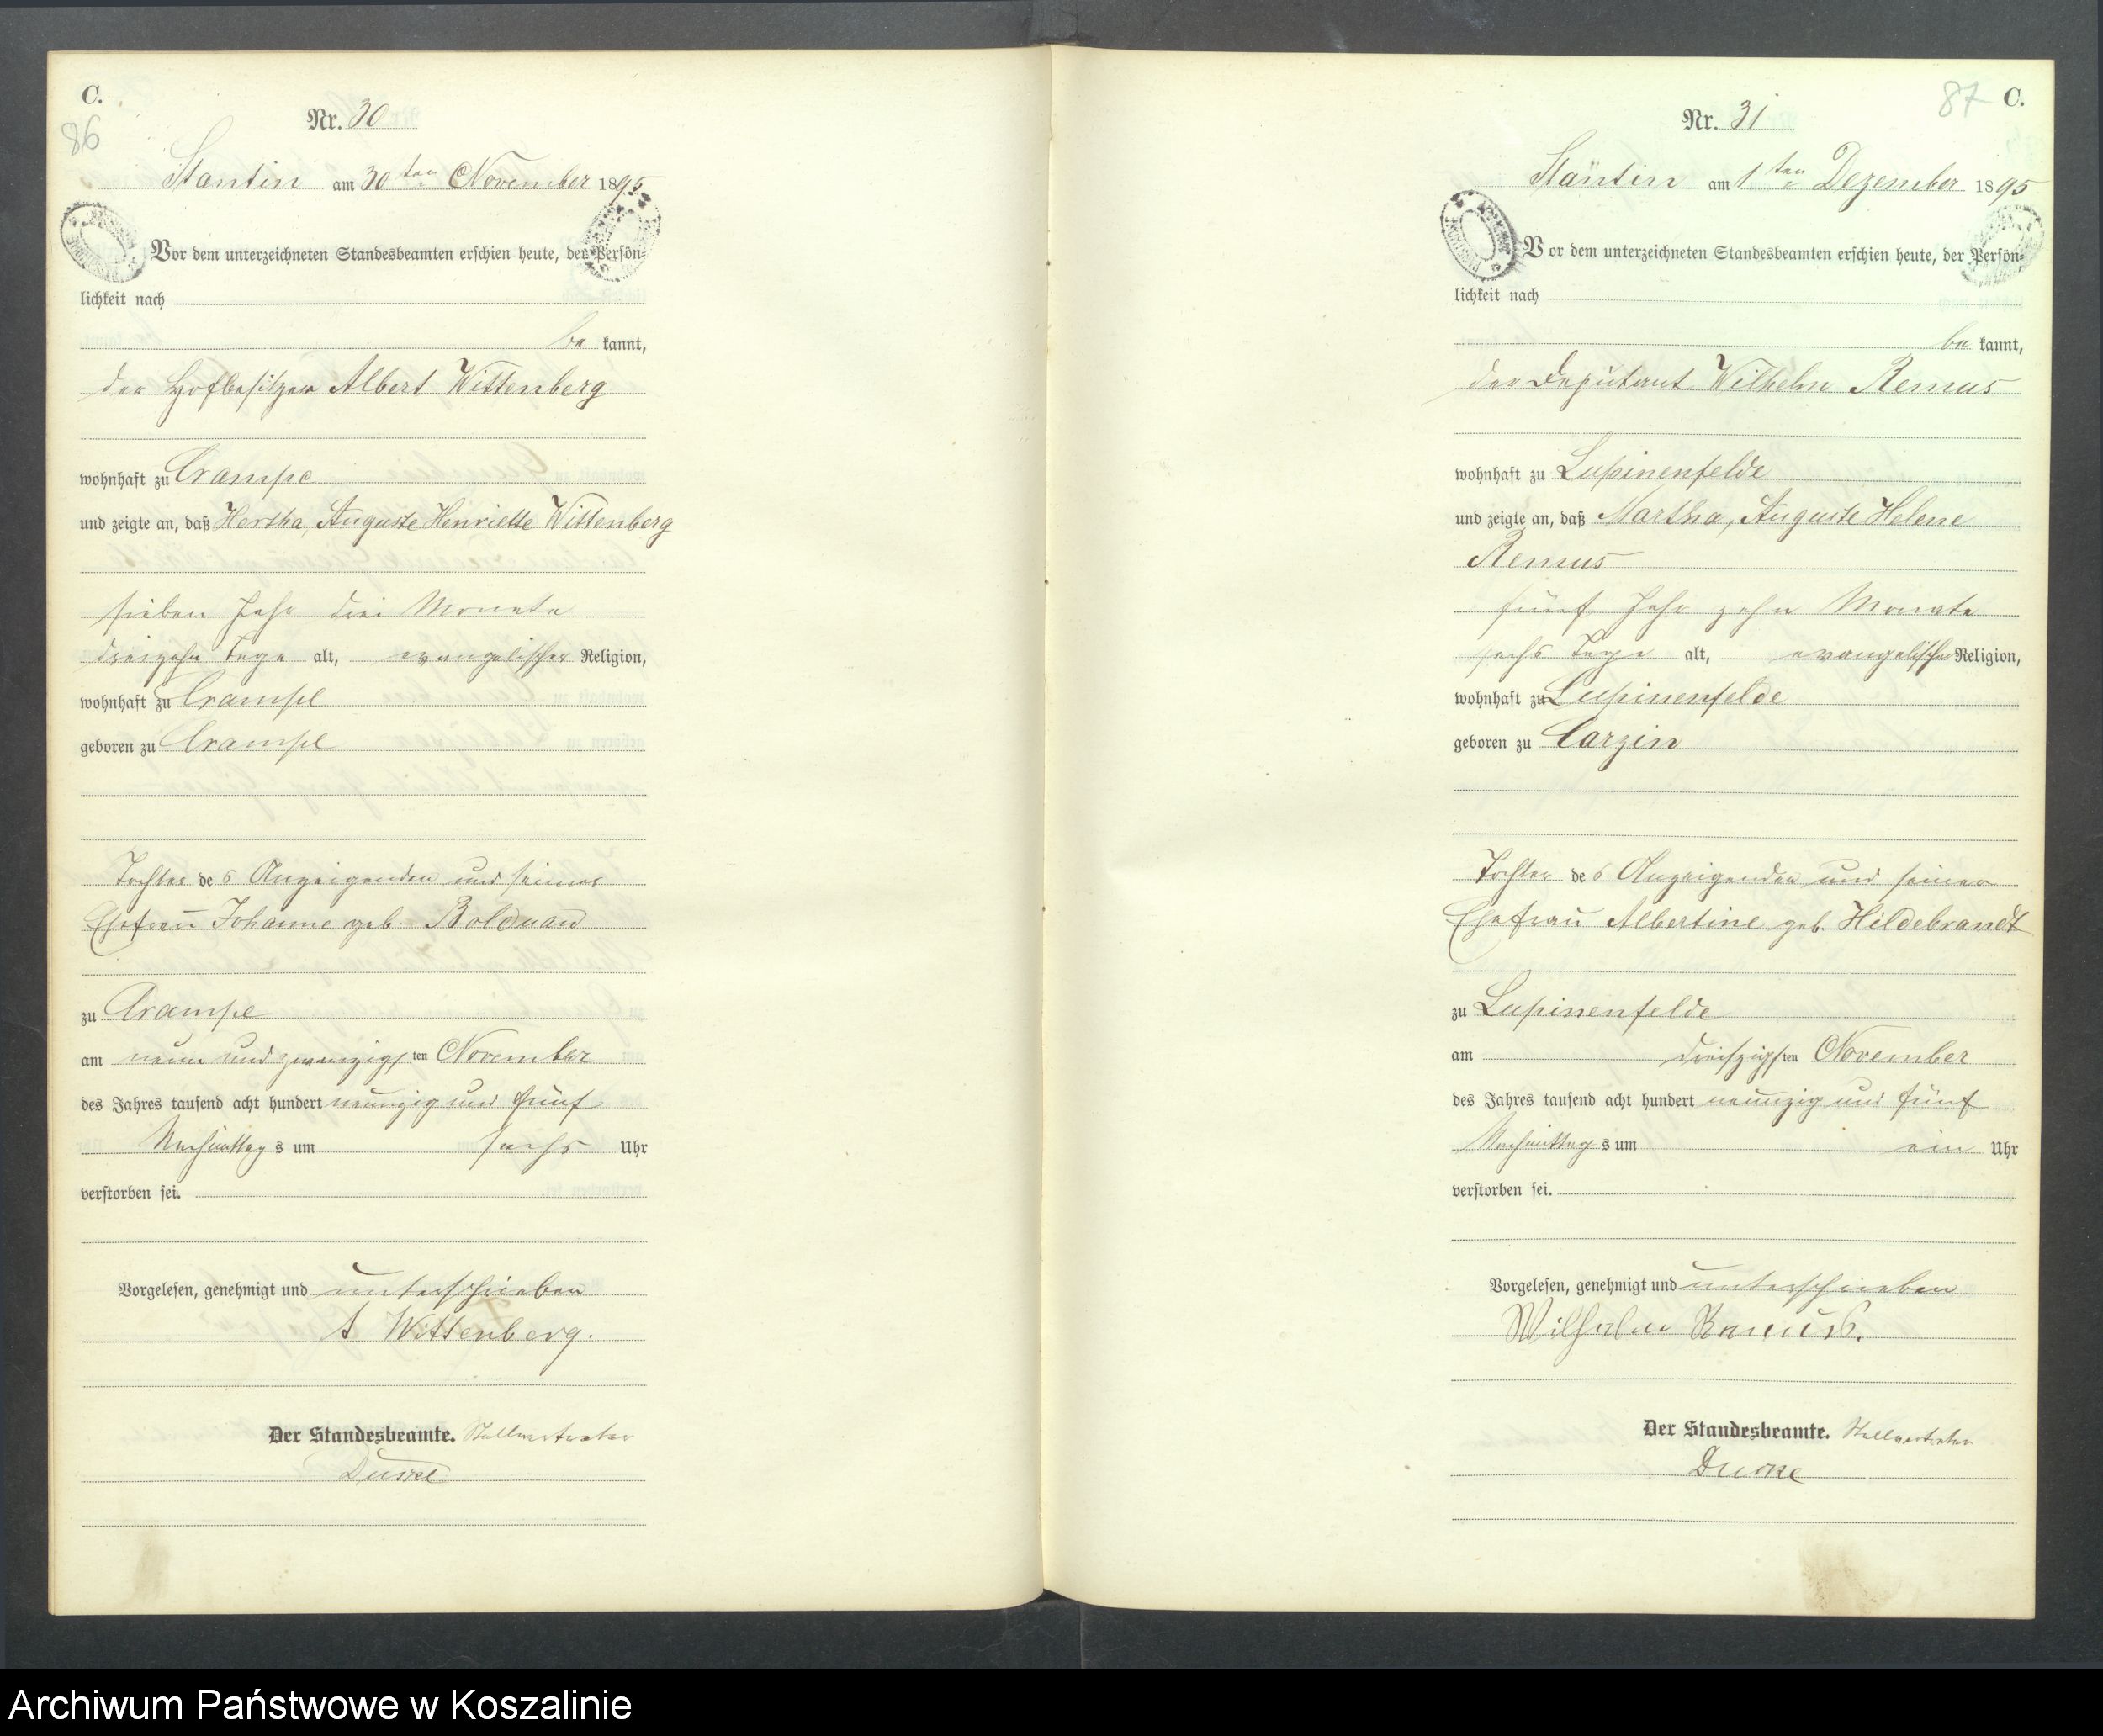 C.
86
Nr. 30
Stantin am 30ten November 1895
Vor dem unterzeichneten Standesbeamten erschien heute, der Persön-
lichkeit nach
be kannt,
der Hofbesitzer Albert Wittenberg
wohnhaft zu Crampe
und zeigte an, daß Hertha, Auguste Henriette Wittenberg
sieben Jahr drei Monate
dreizehn Tage alt, evangelischer Religion,
wohnhaft zu Crampe
geboren zu Crampe
Tochter des Anzeigenden und seiner
Ehefrau Johanne geb. Bolduan
zu Crampe
am neun und zwanzigsten November
des Jahres tausend acht hundert neunzig und fünf
Nachmittags um sechs Uhr
verstorben sei.
Vorgelesen, genehmigt und unterschrieben
A Wittenberg.
Der Standesbeamte. Stellvertreter
87 C.
Nr. 31
Stantin am 1ten Dezember 1895
Vor dem unterzeichneten Standesbeamten erschien heute, der Persön-
lichkeit nach
be kannt,
der Deputant Wilhelm Remus
wohnhaft zu Lupinenfelde
und zeigte an, daß Martha, Auguste Helene
Remus
fünf Jahr zehn Monate
sechs Tage alt, evangelischer Religion,
wohnhaft zu Lupinenfelde
geboren zu Carzin
Tochter des Anzeigenden und seiner
Ehefrau Albertine geb. Hildebrandt
zu Lupinenfelde
am dreiszigsten November
des Jahres tausend acht hundert neunzig und fünf
Nachmittags um ein Uhr
verstorben sei.
Vorgelesen, genehmigt und unterschrieben
Wilhelm Remus.
Der Standesbeamte. Stellvertreter
Archiwum Państwowe w Koszalinie